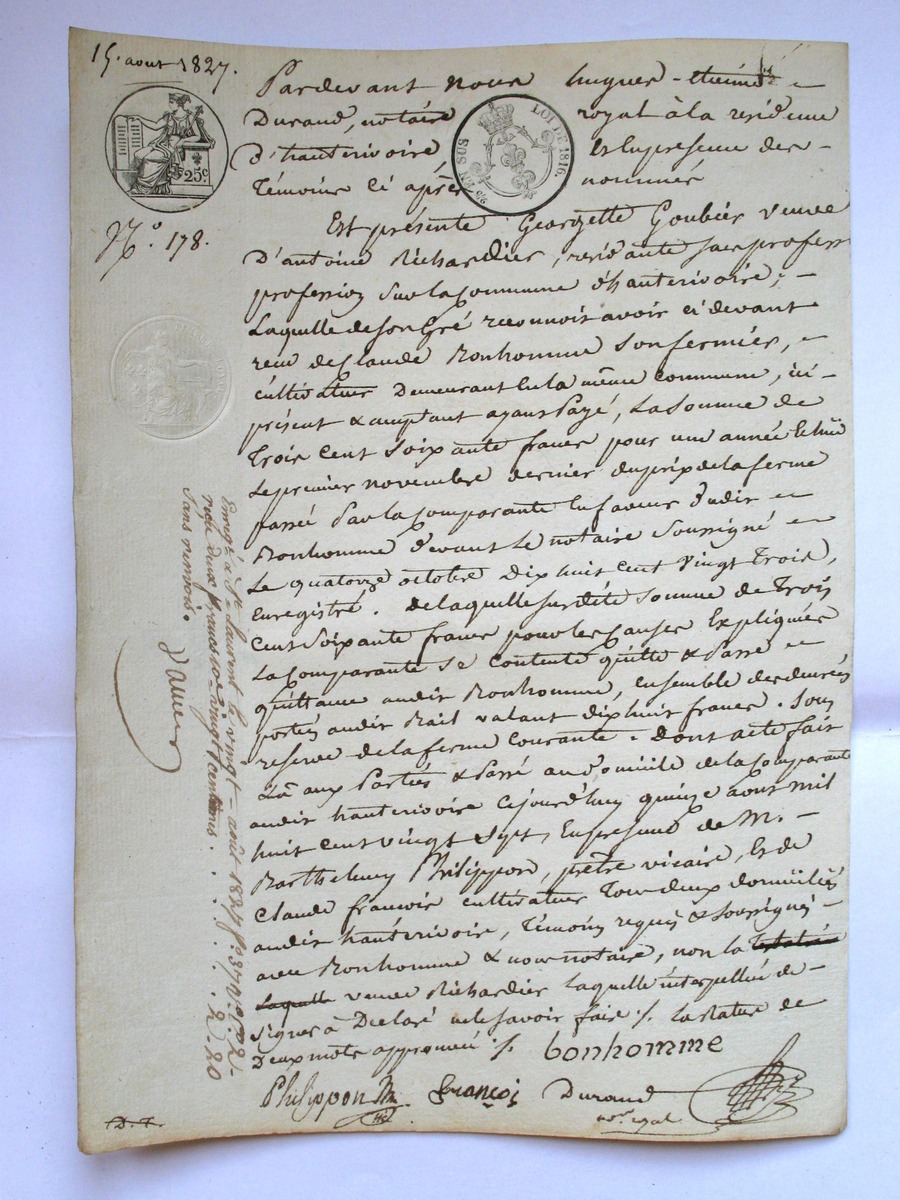 15. aout 1827.
Pardevant nous hugues
Durand, notaire royal à la residence
D'hauterivoire Et En presence des
Témoins ci après nommés
25c
EN SUS
LOI DE 1816.
N.o 178.
Est présente Georgette Goubier veuve
D'antoine Richardier, residante sans profess
profession Sur la Commune d'hauterivoire; -
Laquelle de son Gré reconnoit avoir ci devant
recu de Claude Bonhomme Son fermier,
cultivateur Demeurant En la même Commune, ici -
présent & acceptant ayant Payé, La Somme de
Trois Cent Soixante francs pour une année Echüe
Le premier novembre dernier du prix de la ferme
passée Par la Comparante En faveur dudit
Bonhomme devant Le notaire Soussigné
Le quatorze octobre Dix huit cent Vingt Trois,
Enregistré. De laquelle susdite somme de Trois
Cent Soixante francs pour les Causes Expliquées
La Comparante Se Contente quitte & Passe
quittance audit Bonhomme, Ensemble des denrées
portées audit Bail valant dix huit francs. Sous
reserve de la ferme Courante. Dont acte fait
Lû aux Parties & Passé au Domicile de la Comparante
audit hauterivoire Cejourd'huy quinze aout mil
huit Cent vingt Sept, En presence de M. -
Barthelemy Philippon, prêtre vicaire, Et de
Claude francois cultivateur Tous deux domiciliés
audit hauterivoire, Témoins requis & soussignés -
avec Bonhomme & nous notaire, non la
Laquelle veuve Richardier Laquelle interpellée de -
Signer à Déclaré ne le savoir faire ./. La Rature de
Deux mots approuvée ./. bonhomme
Philippon françois Durand
nore royal
D. T.
Enregé à St Laurent le vingt - août 1827
reçu deux francs vingt centimes . . . . 2. 20
Sans renvois.